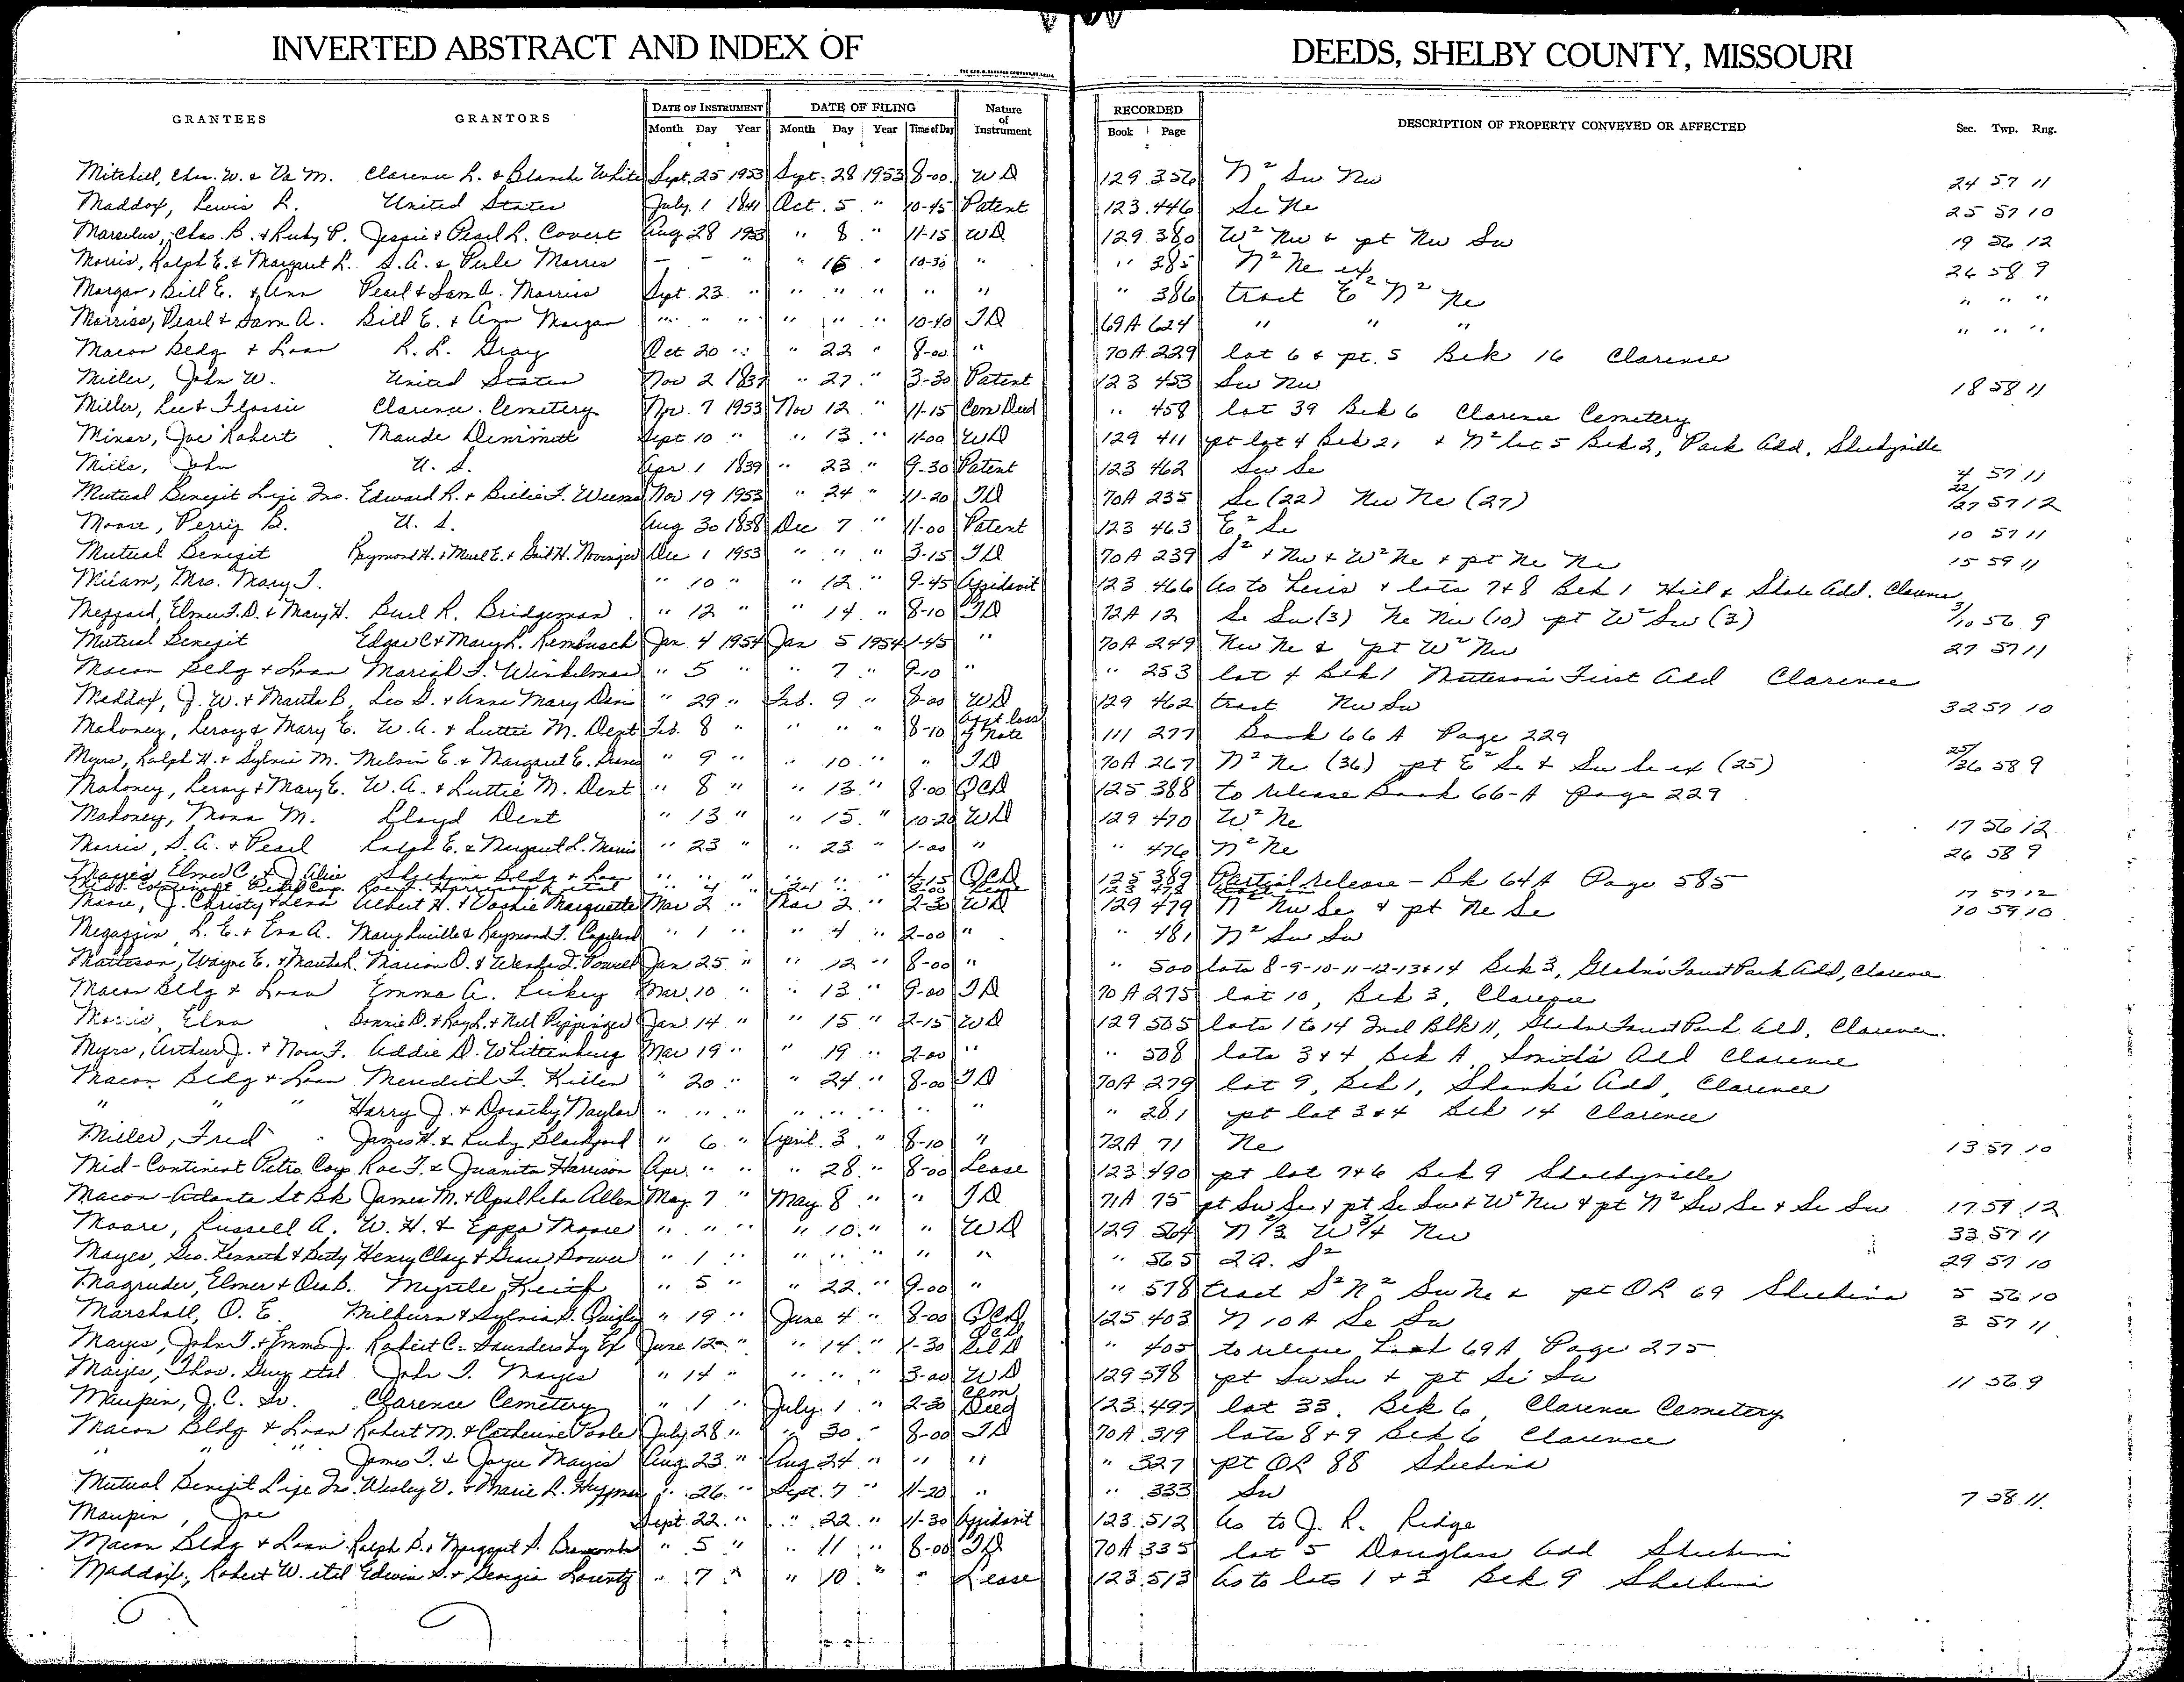 INVERTED ABSTRACT AND INDEX OF DEEDS, SHELBY COUNTY, MISSOURI
GRANTEES GRANTORS DATE OF INSTRUMENT DATE OF FILING Nature of Instrument RECORDED DESCRIPTION OF PROPERTY CONVEYED OR AFFECTED Sec. Twp. Rng.
Month Day Year Month Day Year Time of Day Book Page
Mitchell, Chas. W. & Va M. Clarence L. & Blanche White Sept. 25 1953 Sept. 28 1953 8-00 WD 129 356 N² Sw Nw 24 57 11
Maddox, Lewis L. United States July 1 1841 Oct. 5 " 10-45 Patent 123 446 Se Ne 25 57 10
Marselus, Chas. B. & Ruby P. Jessie & Pearl L. Covert Aug 28 1953 " 8 " 11-15 WD 129 380 W² Nw & pt Nw Sw 19 56 12
Morris, Ralph E. & Margaret L. S. A. & Perle Morris - - " " 16 " 10-30 " " 385 N² Ne ex 26 58 9
Morgan, Bill E. & Ann Pearl & Sam A. Morriss Sept. 23 " " " " " " " 386 tract E² N² Ne " " "
Morriss, Pearl & Sam A. Bill E. & Ann Morgan " " " " " " 10-40 TD 69A 624 " " " " " "
Macon Bldg & Loan R. L. Gray Oct 20 " " 22 " 8-00 " 70A 229 lot 6 & pt. 5 Blk 16 Clarence
Miller, John W. United States Nov 2 1837 " 27 " 3-30 Patent 123 453 Sw Nw 18 58 11
Miller, Lee & Flossie Clarence Cemetery Nov. 7 1953 Nov 12 " 11-15 Cem Deed " 458 lot 39 Blk 6 Clarence Cemetery
Miner, Joe Robert Maude Dimmitt Sept 10 " " 13 " 11-00 WD 129 411 pt lot 4 Blk 2, & N² lot 5 Blk 2, Park Add, Shelbyville
Mills, John U. S. Apr 1 1839 " 23 " 9-30 Patent 123 462 Sw Se 4 57 11
Mutual Benefit Life Ins. Edward R. & Billie F. Weems Nov 19 1953 " 24 " 11-20 TD 70A 235 Se (22) Nw Ne (27) 22/27 57 12
Moore, Perry B. U. S. Aug 30 1838 Dec 7 " 11-00 Patent 123 463 E² Se 10 57 11
Mutual Benefit Raymond H. & Murl E. & Gail H. Novinger Dec 1 1953 " " " 3-15 TD 70A 239 S² & Nw & W² Ne & pt Ne Ne 15 59 11
Milam, Mrs. Mary J. " 10 " " 12 " 9-45 Affidavit 123 466 As to Heirs & lots 7 & 8 Blk 1 Hill & Slate Add. Clarence
Elmer F. D. & Mary H. Burl R. Bridgeman " 12 " " 14 " 8-10 TD 72A 12 Se Sw (3) Ne Nw (10) pt W² Sw (3) 3/10 56 9
Mutual Benefit Edgar C & Mary L. Rembusch Jan 4 1954 Jan 5 1954 1-45 " 70A 249 Nw Ne & pt W² Nw 27 57 11
Macon Bldg & Loan J. Winkelman " 5 " " 7 " 9-10 " " 253 lot 4 Blk 1 First Add Clarence
Maddox, J. W. & Martha B. Leo G. & Anna Mary " 29 " Feb. 9 " 8-00 WD 129 462 tract Nw Sw 32 57 10
Mahoney, Leroy & Mary E. W. A. & Luttie M. Dent Feb. 8 " " " " 8-10 loss of Note 111 277 Book 66 A Page 229
Myers, Ralph H. & Sylvia M. Melvin E. & Margaret E. " 9 " " 10 " " TD 70A 267 N² Ne (36) pt E² Se & Sw Se ex (25) 25/36 58 9
Mahoney, Leroy & Mary E. W. A. & Luttie M. Dent " 8 " " 13 " 8-00 QCD 125 388 to release Book 66-A Page 229
Mahoney, Mona M. Lloyd Dent " 13 " " 15 " 10-20 WD 129 470 W² Ne 17 56 12
Morris, S. A. & Pearl Ralph E. & Margaret L. Morris " 23 " " 23 " 1-00 " " 476 N² Ne 26 58 9
Mayes, Elmer C. & J Alice Shelbina Bldg & Loan " " " " " " 4-15 QCD 125 389 Partial release - Bk 64A Page 585
Moore, J. Christy & Lena Albert H. & Marquette Mar 2 " Mar 2 " 2-30 WD 129 479 N² Nw Se & pt Ne Se 10 59 10
L. E. & Eva A. Mary Lucille & Raymond F. Copeland " 1 " " 4 " 2-00 " " 481 N² Sw Sw
Matteson, Wayne E. & Marion O. & Powell Jan 25 " " 12 " 8-00 " " 500 lots 8-9-10-11-12-13 & 14 Blk 3, Park Add, Clarence
Macon Bldg & Loan Emma A. Lickey Mar. 10 " " 13 " 9-00 TD 70A 275 lot 10, Blk 3, Clarence
Morris, Elna Bonnie D. & Ray L. & Nell Pippinger Jan 14 " " 15 " 2-15 WD 129 505 lots 1 to 14 Incl Blk 11, Park Add, Clarence.
Myers, Arthur J. & F. Addie D. Whittenburg Mar 19 " " 19 " 2-00 " " 508 lots 3 & 4 Blk A, Smith's Add Clarence
Macon Bldg & Loan Meredith F. Killen " 20 " " 24 " 8-00 TD 70A 279 lot 9, Blk 1, Shank's Add, Clarence
" " " Harry J. & Dorothy Naylor " " " " " " " " " 281 pt lot 3 & 4 Blk 14 Clarence
Miller, Fred James H. & Ruby Blackford " 6 " April 3 " 8-10 " 72A 71 Ne 13 57 10
Mid-Continent Petro. Corp Roe F. & Juanita Harrison Apr. " " " 28 " 8-00 Lease 123 490 pt lot 7 & 6 Blk 9 Shelbyville
Macon-Atlanta St Bk James M. & Opal Allen May 7 " May 8 " " TD 71A 75 pt Sw Se & pt Se Sw & W² Nw & pt N² Sw Se & Se Sw 17 59 12
Moore, Russell A. W. H. & Eppa Moore " " " " 10 " " WD 129 564 N 1/3 W 3/4 Nw 33 57 11
Mayes, Geo. Kenneth & Betty Henry Clay & Bower " 1 " " " " " " " 565 2 A. S² 29 57 10
Magruder, Elmer & Ora B. Myrtle Keith " 5 " " 22 " 9-00 " " 578 tract S² N² Sw Ne & pt OL 69 Shelbina 5 56 10
Marshall, O. E. Milburn & Sylvia D. Quigley " 19 " June 4 " 8-00 QCD 125 403 N 10 A Se Sw 3 57 11
Mayes, John T. & Emma J. Robert C. Saunders by Ex June 12 " " 14 " 1-30 QCD Rel D " 405 to release Book 69A Page 275
Mayes, Thos. Guy etal John T. Mayes " 14 " " " " 3-00 WD 129 598 pt Sw Sw & pt Se Sw 11 56 9
Maupin, J. C. Sr. Clarence Cemetery " 1 " July 1 " 2-30 Cem Deed 123 497 lot 33 Blk 6, Clarence Cemetery
Macon Bldg & Loan Robert M. & Catherine Poole July 28 " " 30 " 8-00 TD 70A 319 lots 8 & 9 Blk 6 Clarence
" " James T. & Joyce Mayes Aug 23 " Aug 24 " " " " 327 pt OL 88 Shelbina
Mutual Benefit Life Ins. Wesley V. & Marie L. Huffman " 26 " Sept. 7 " 11-20 " " 333 Sw 7 58 11
Maupin, Joe Sept. 22 " " 22 " 11-30 Affidavit 123 512 As to J. R. Ridge
Macon Bldg & Loan Ralph B. & Margaret A. " 5 " " 11 " 8-00 TD 70A 335 lot 5 Douglass Add Shelbina
Maddox, Robert W. etal Edwin S. & Georgia Lorentz " 7 " " 10 " " Lease 123 513 As to lots 1 & 2 Blk 9 Shelbina